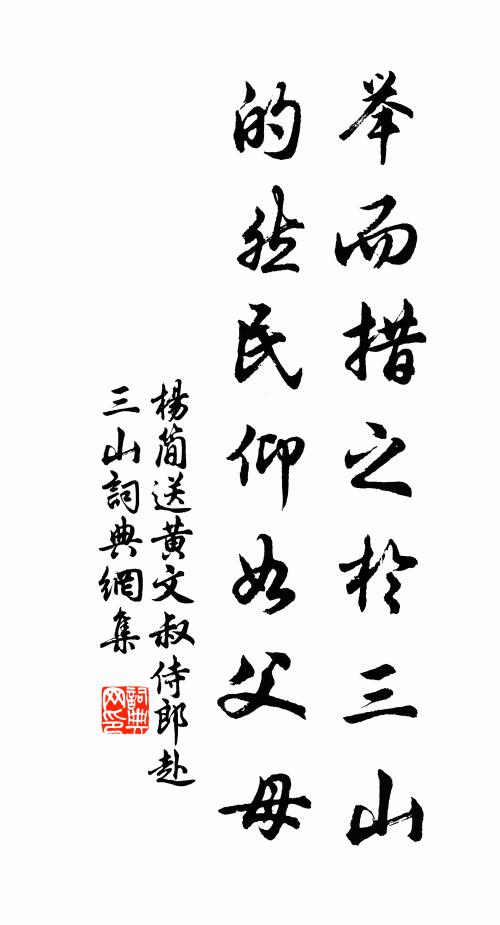 举而措之於三山
的然民仰如父母
楊简送黄文叔侍郎赴
三山詞典網集
詞典网印